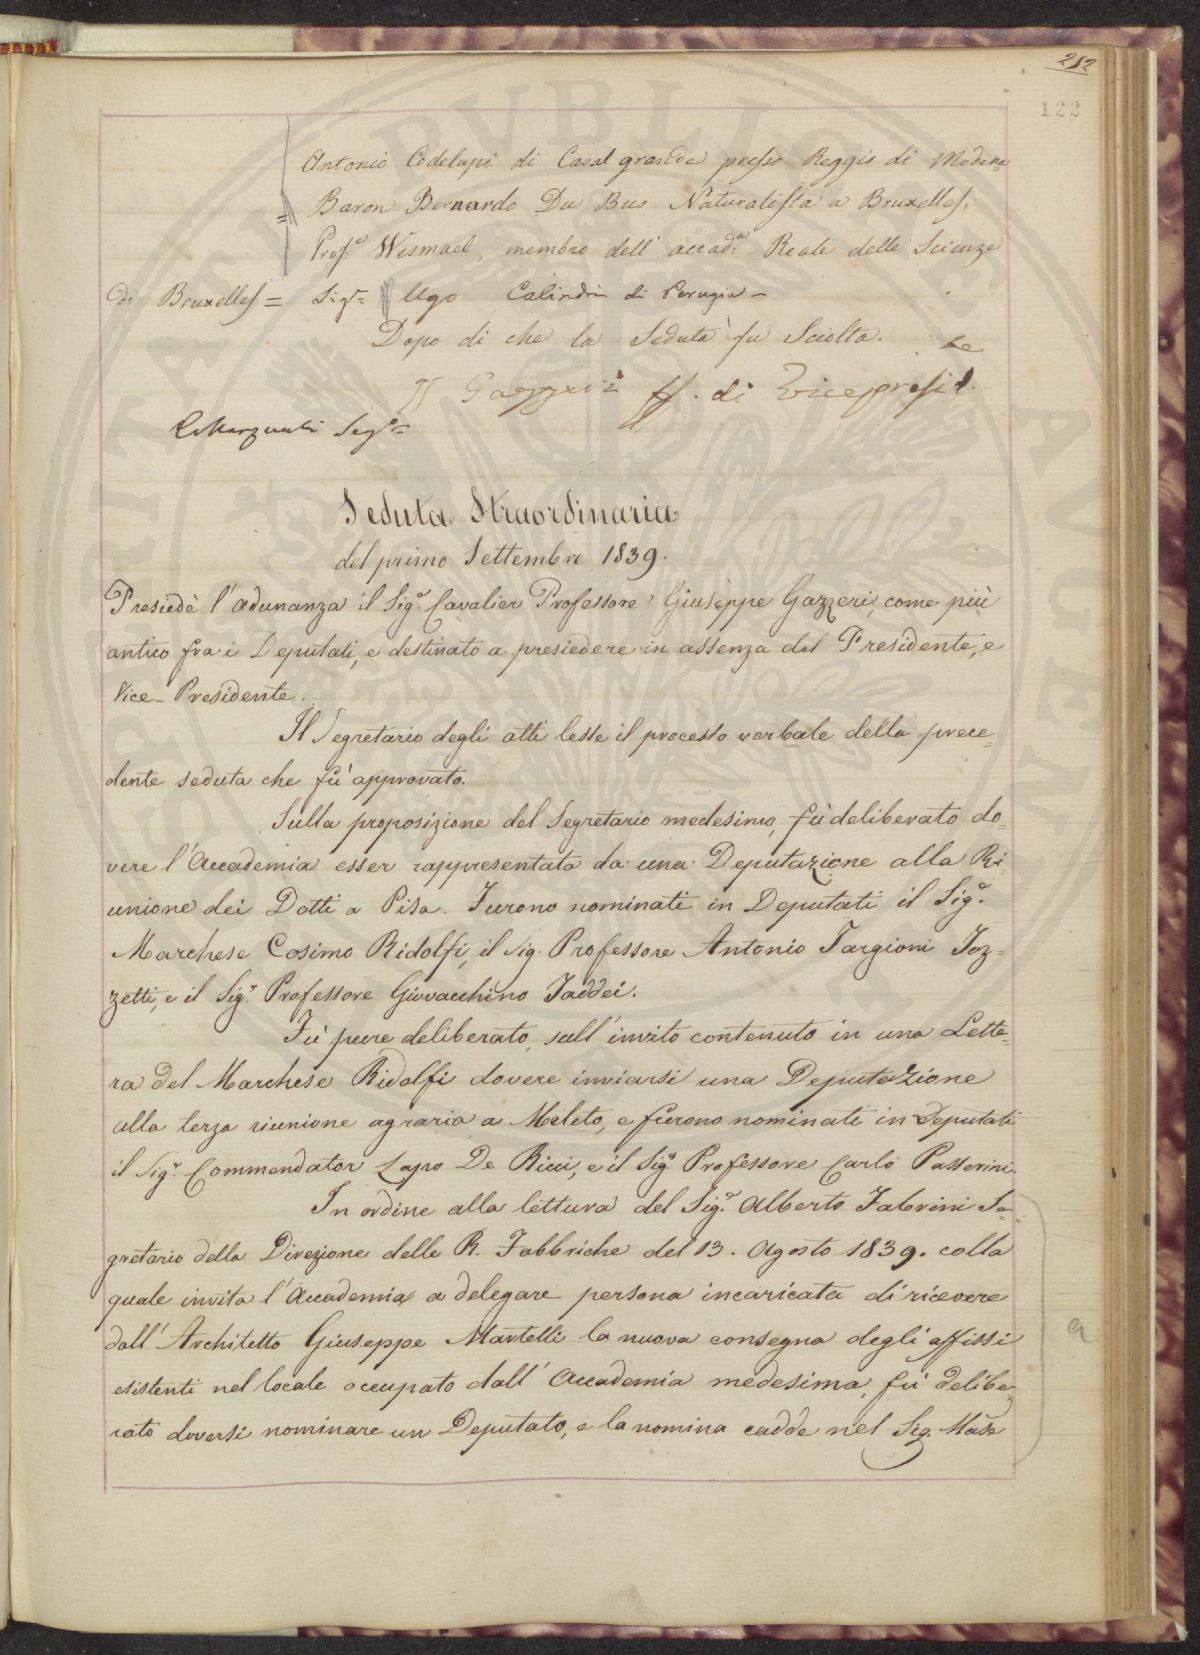 212
122
Antonio Codelupi di Casal grande presso Reggio di Modena
Baron Bernardo Du Bus Naturalista a Bruxelles,
Prof.e Wesmael, membro dell' accad.a Reale delle Scienze
di Bruxelles = Sig.r Ugo Calindri di Perugia -
Dopo di che la Seduta fu Sciolta.
Gazzeri ff. di Vicepresid.te
Seg.o
Seduta Straordinaria
del primo Settembre 1839.
Presiedè l'adunanza il Sig.r Cavalier Professore Giuseppe Gazzeri, come più
antico fra i Deputati, e destinato a presiedere in assenza del Presidente, e
Vice-Presidente.
Il Segretario degli atti lesse il processo verbale della prece=
dente seduta che fù approvato.
Sulla proposizione del Segretario medesimo, fù deliberato do=
vere l'Accademia esser rappresentata da una Deputazione alla Ri=
unione dei Dotti a Pisa. Furono nominati in Deputati il Sig.r
Marchese Cosimo Ridolfi, il Sig. Professore Antonio Targioni Toz=
zetti, e il Sig.r Professore Giovacchino Taddei.
Fù pure deliberato, sull'invito contenuto in una Lette=
ra del Marchese Ridolfi dovere inviarsi una Deputazione
alla terza riunione agraria a Meleto, e furono nominati in Deputati
il Sig.r Commendator Lapo De Ricci, e il Sig.r Professore Carlo Passerini.
In ordine alla lettura del Sig.r Alberto Fabrini Se=
gretario della Direzione delle R. Fabbriche del 13. Agosto 1839. colla
quale invita l'Accademia a delegare persona incaricata di ricevere
dall'Architetto Giuseppe Martelli la nuova consegna degli affissi
esistenti nel locale occupato dall'Accademia medesima, fù delibe=
rato doversi nominare un Deputato, e la nomina cadde nel Sig.